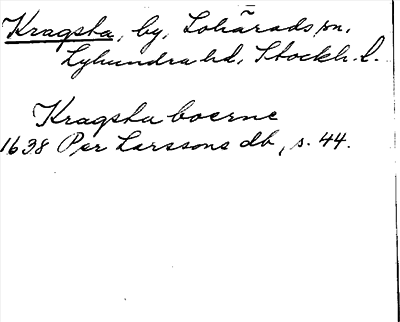 Kragsta, by, Lohärads sn.
Lyhundra hd, Stockh. l.
Kragsta boerne
1638 Per Larssons db, s. 44.